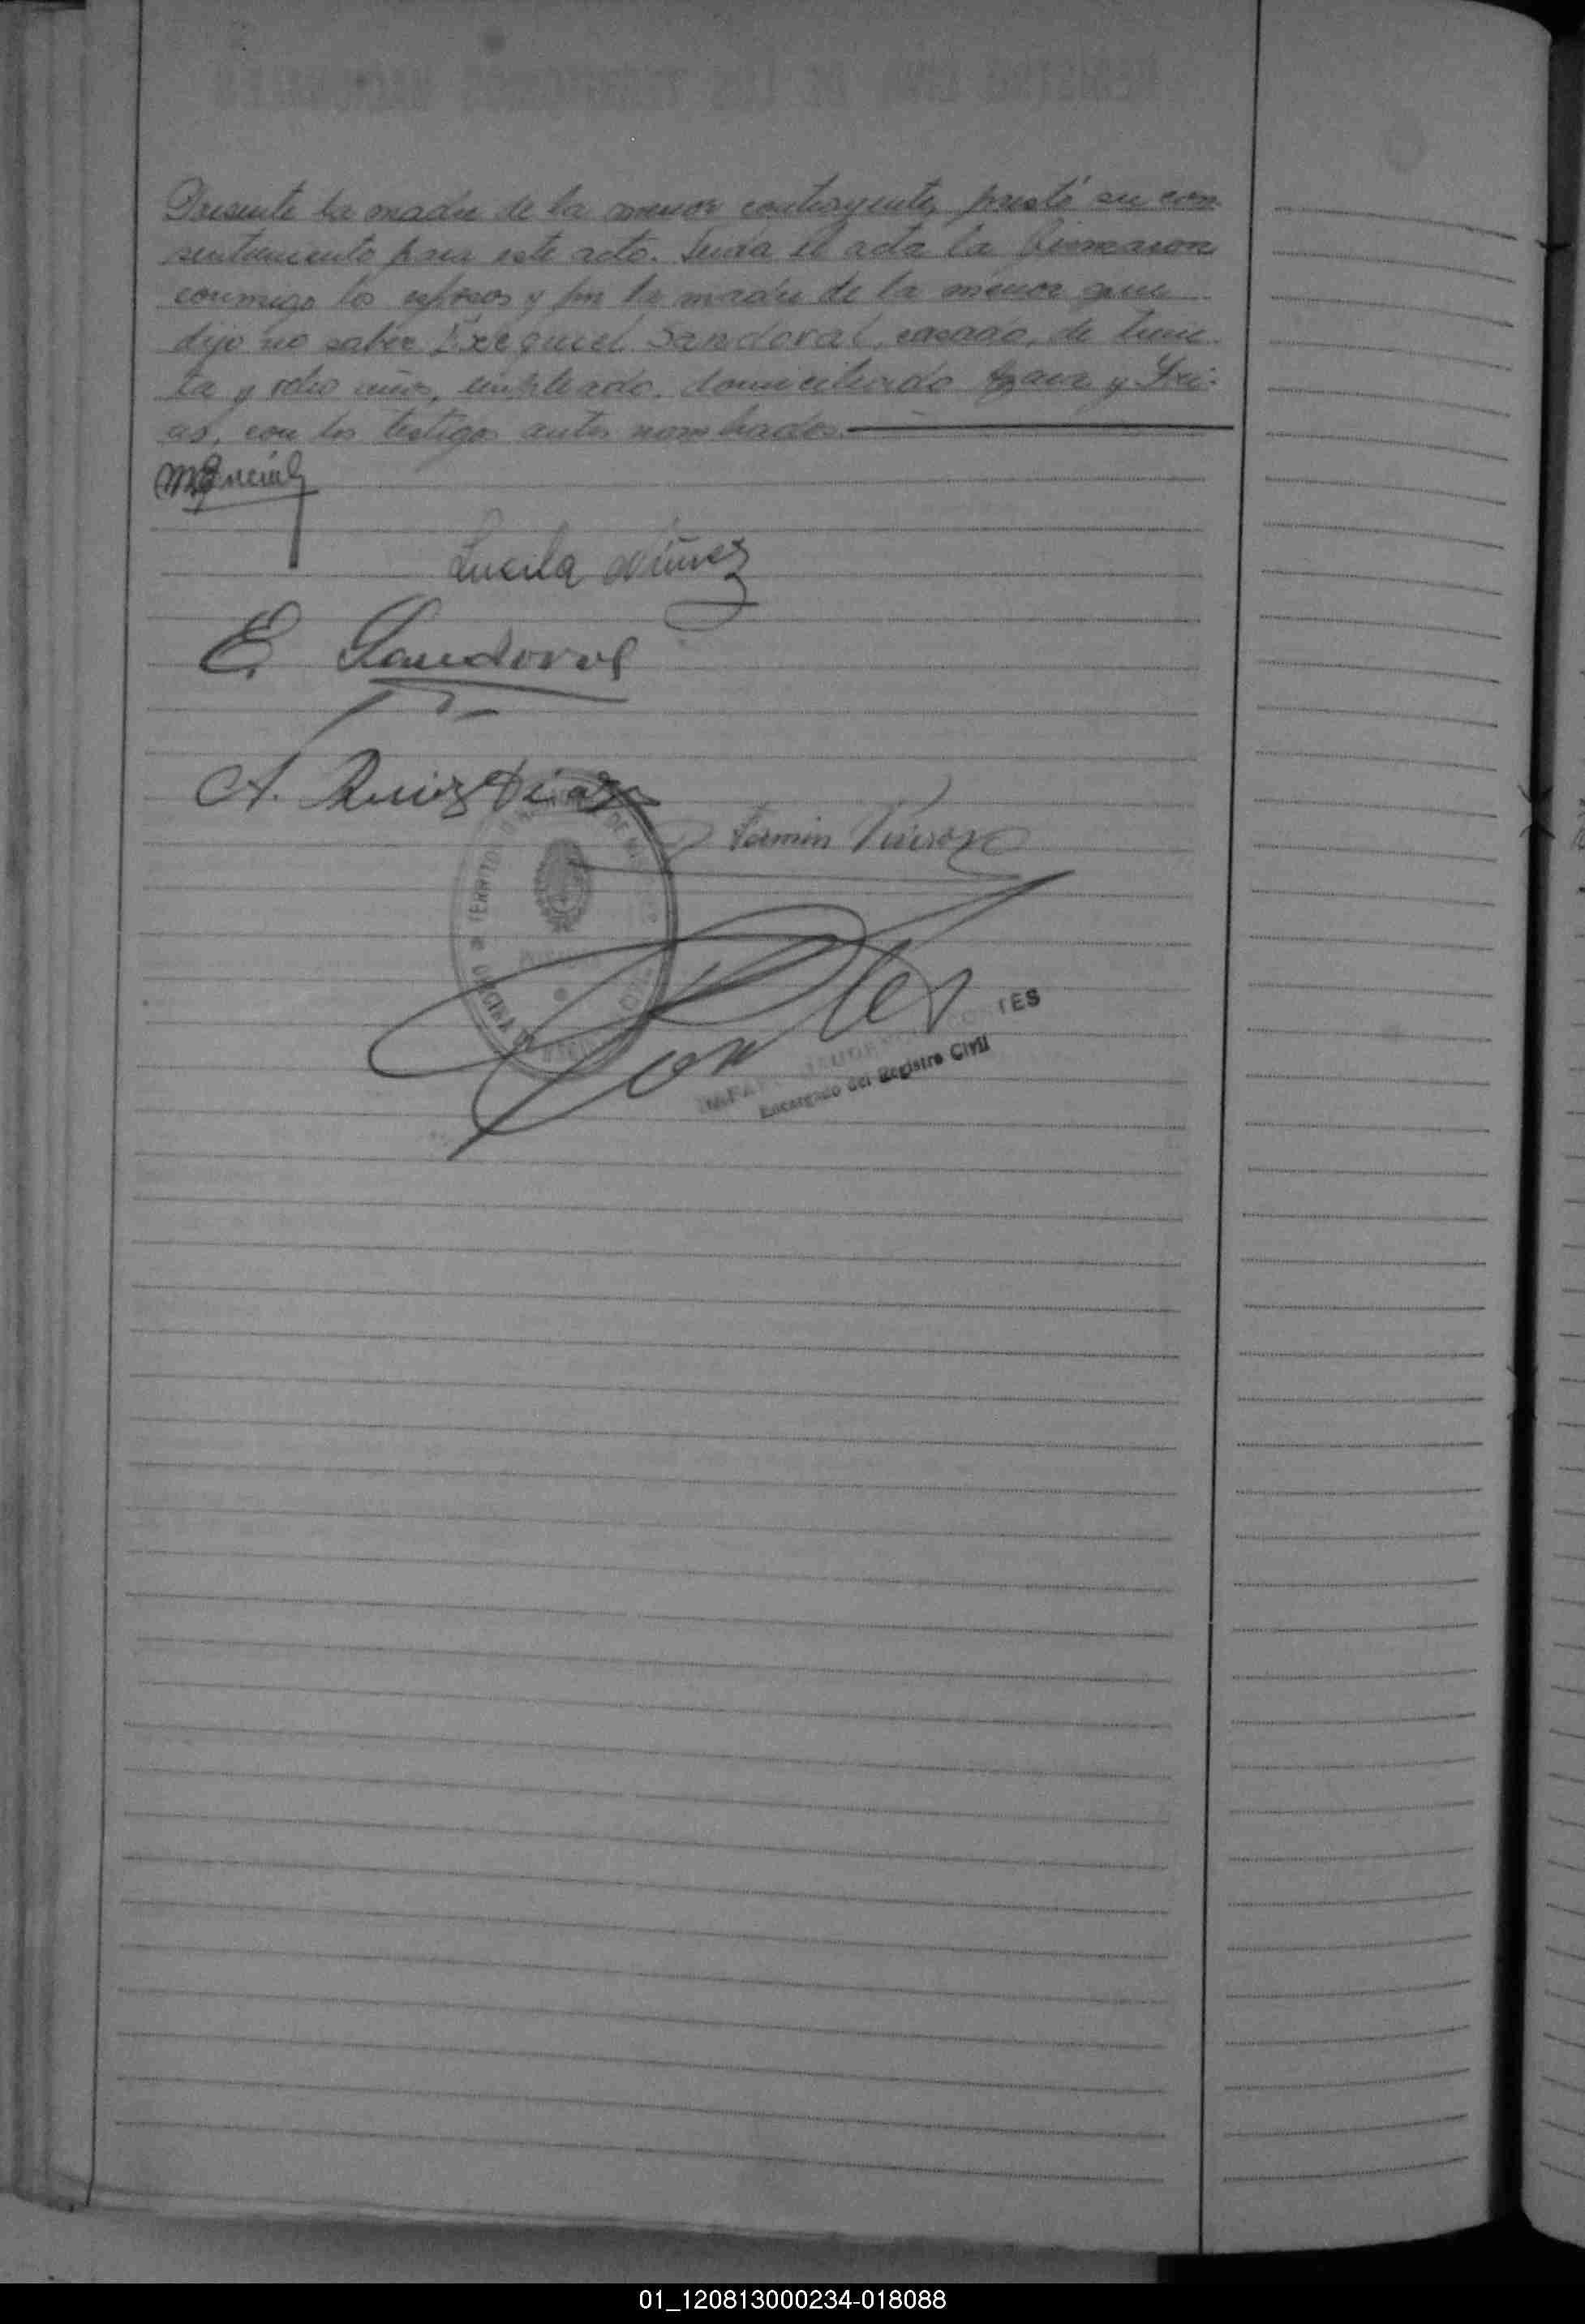 Presente la madre de la menor contrayente, prestó su con
sentimiento para este acto. Leida el acta la firmaron
conmigo los esposos y por la madre de la menor que
dijo no saber Exequiel Sandoval, casado, de trein
ta y ocho años, empleado, domiciliado y Frí-
as, con los testigos antes nombrados.
Lucila Núñez
E. Sandoval
A. Ruiz Diaz
Fermin
TERRITO
Encargado del Registro Civil
01_120813000234-018088